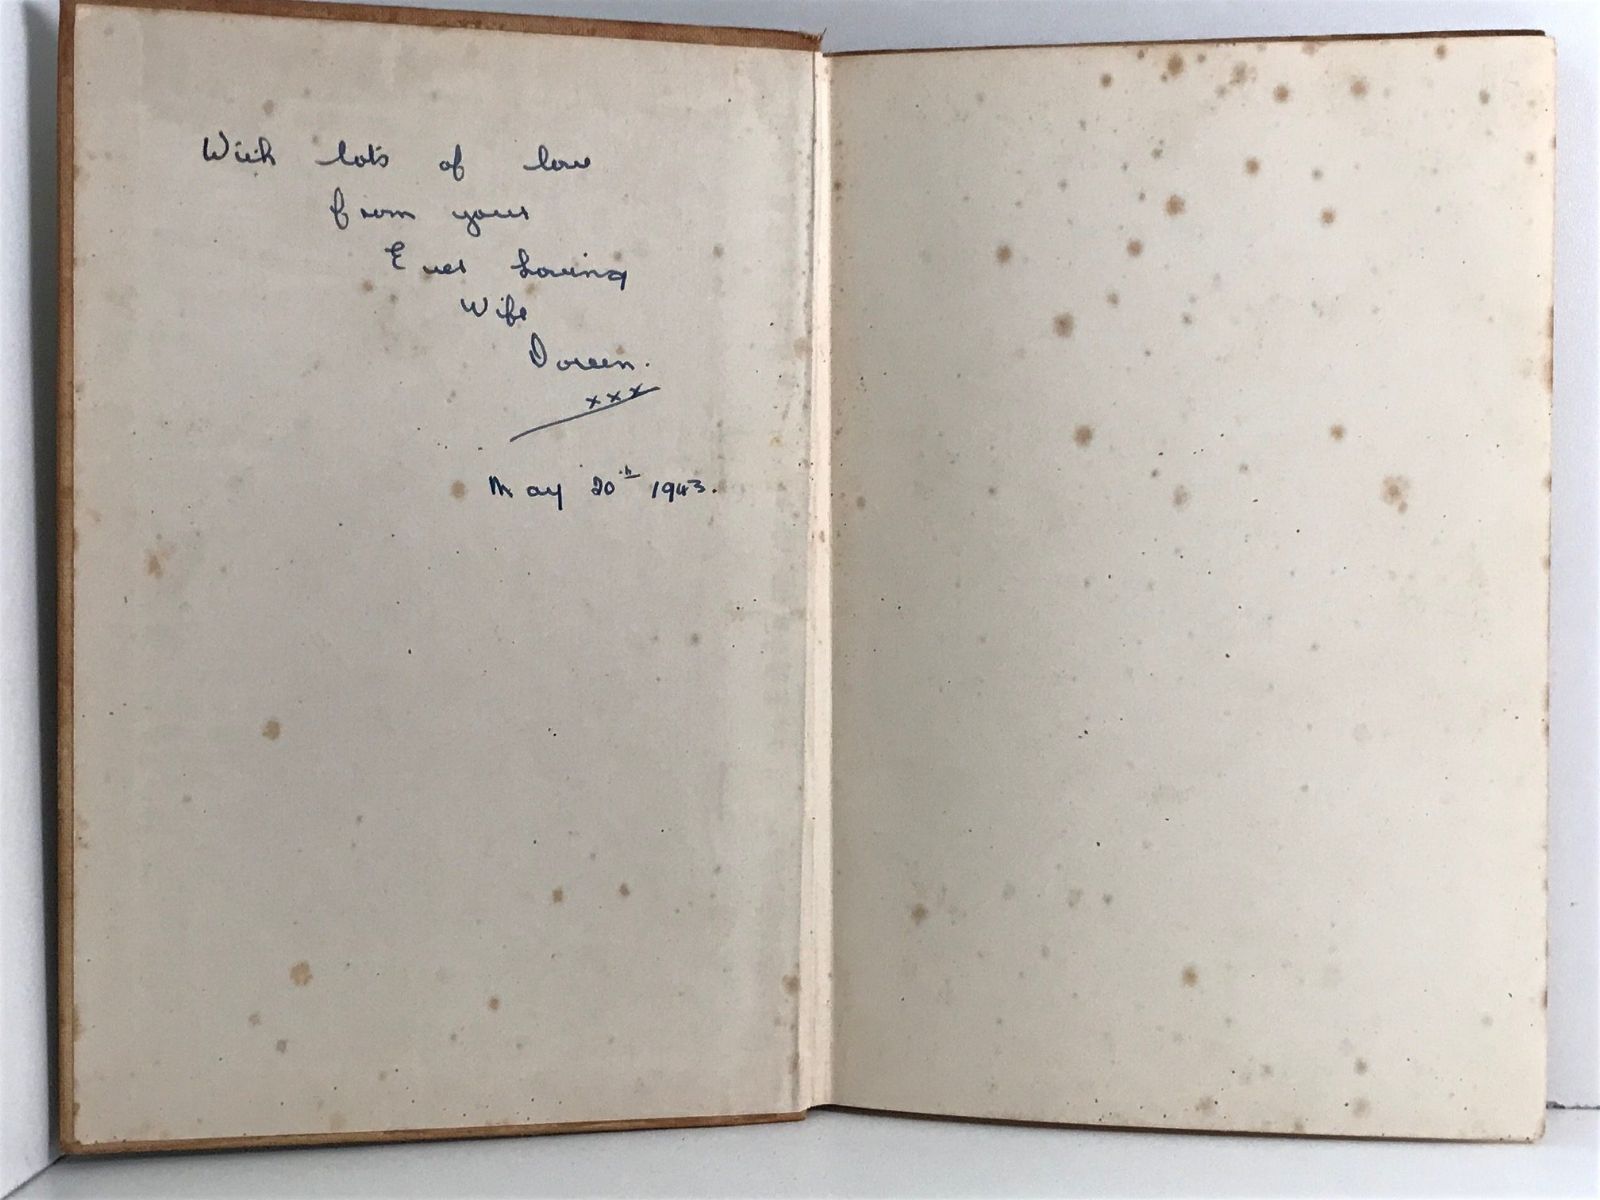 With lots of love
from your
Ever Loving
Wife
Doreen.
xxx
May 20th 1943.